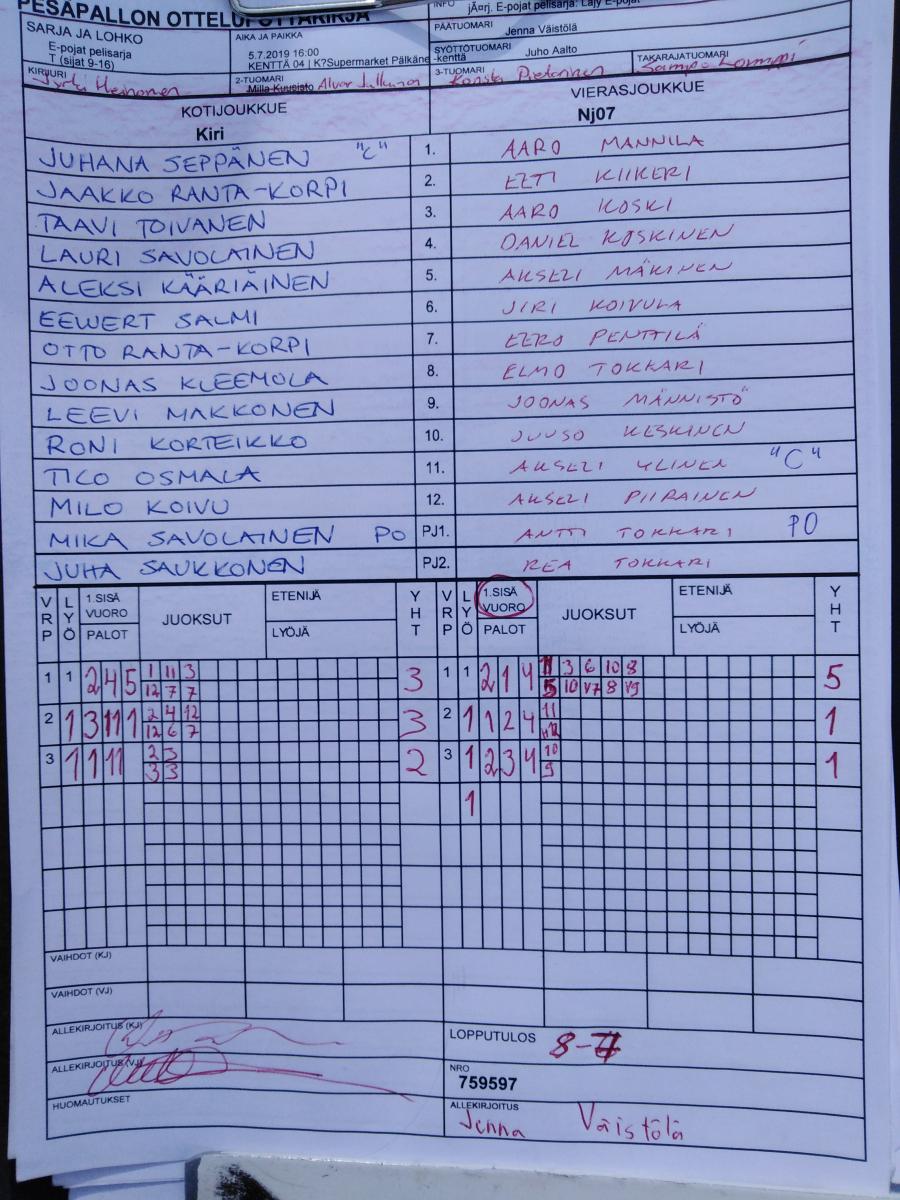 PESÄPALLON OTTELUPÖYTÄKIRJA
INFO
SARJA JA LOHKO
E-pojat pelisarja
T (sijat 9-16)
AIKA JA PAIKKA
5.7.2019 16:00
KENTTÄ 04 | K?Supermarket Pälkäne -kenttä
PÄÄTUOMARI
Jenna Väistölä
SYÖTTÖTUOMARI Juho Aalto
KIRJURI
Heinonen
2-TUOMARI
Milla Kuusisto Alvar
3-TUOMARI
Konsta
TAKARAJATUOMARI
Sampo
KOTIJOUKKUE
Kiri
VIERASJOUKKUE
Nj07
JUHANA SEPPÄNEN "C" 1. AARO MANNILA
JAAKKO RANTA-KORPI 2. EETI KIIKERI
TAAVI TOIVANEN 3. AARO KOSKI
LAURI SAVOLAINEN 4. DANIEL KOSKINEN
ALEKSI KÄÄRIÄINEN 5. AKSELI MÄKINEN
EEWERT SALMI 6. JIRI KOIVULA
OTTO RANTA-KORPI 7. EERO PENTTILÄ
JOONAS KLEEMOLA 8. ELMO TOKKARI
LEEVI MAKKONEN 9. JOONAS MÄNNISTÖ
RONI KORTEIKKO 10. JUUSO KESKINEN
TICO OSMALA 11. AKSELI YLINEN "C"
MILO KOIVU 12. AKSELI PIIRAINEN
MIKA SAVOLAINEN PO PJ1. ANTTI TOKKARI PO
JUHA SAUKKONEN PJ2. REA TOKKARI
VRP LYÖ 1.SISÄ VUORO PALOT JUOKSUT ETENIJÄ LYÖJÄ YHT VRP LYÖ 1.SISÄ VUORO PALOT JUOKSUT ETENIJÄ LYÖJÄ YHT
1 1 2 4 5 1 11 3 3 1 1 2 1 4 11 3 6 10 8 5
12 7 7 5 10 V7 8 V9
2 1 3 11 1 2 4 12 3 2 1 1 2 4 11 1
12 6 7
3 1 1 11 2 3 2 3 1 2 3 4 10 1
3 3 9
1
VAIHDOT (KJ)
VAIHDOT (VJ)
ALLEKIRJOITUS (KJ)
ALLEKIRJOITUS (VJ)
HUOMAUTUKSET
LOPPUTULOS 8-7
NRO
759597
ALLEKIRJOITUS
Jenna Väistölä